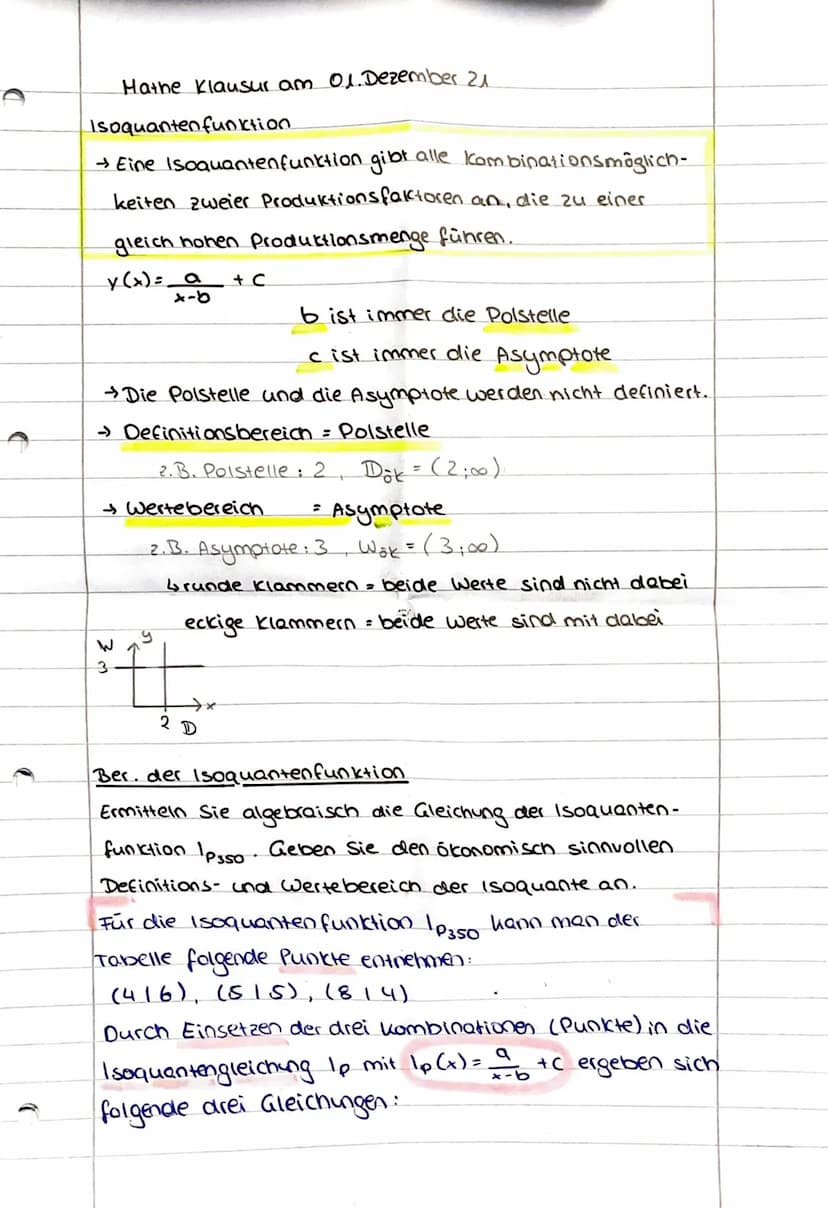 Mathe Klausur am 01. Dezember 21
Isoquantenfunktion
→ Eine Isoquantenfunktion gibt alle Kombinationsmöglich-
keiten zweier Produktionsfaktoren an, die zu einer
gleich hohen Produktionsmenge führen.
y(x) = a/(x-b) + c
b ist immer die Polstelle
c ist immer die Asymptote
→ Die Polstelle und die Asymptote werden nicht definiert.
→ Definitionsbereich = Polstelle
z.B. Polstelle : 2 , Dök = (2;∞)
→ Wertebereich = Asymptote
z.B. Asymptote : 3 , Wök = (3;∞)
↳ runde Klammern = beide Werte sind nicht dabei
eckige Klammern = beide Werte sind mit dabei
W y
3
x
2 D
Ber. der Isoquantenfunktion
Ermitteln Sie algebraisch die Gleichung der Isoquanten-
funktion Ip350. Geben Sie den ökonomisch sinnvollen
Definitions- und Wertebereich der Isoquante an.
Für die Isoquantenfunktion Ip350 kann man der
Tabelle folgende Punkte entnehmen:
(4|6), (5|5), (8|4)
Durch Einsetzen der drei Kombinationen (Punkte) in die
Isoquantengleichung Ip mit Ip(x) = a/(x-b) + c ergeben sich
folgende drei Gleichungen: